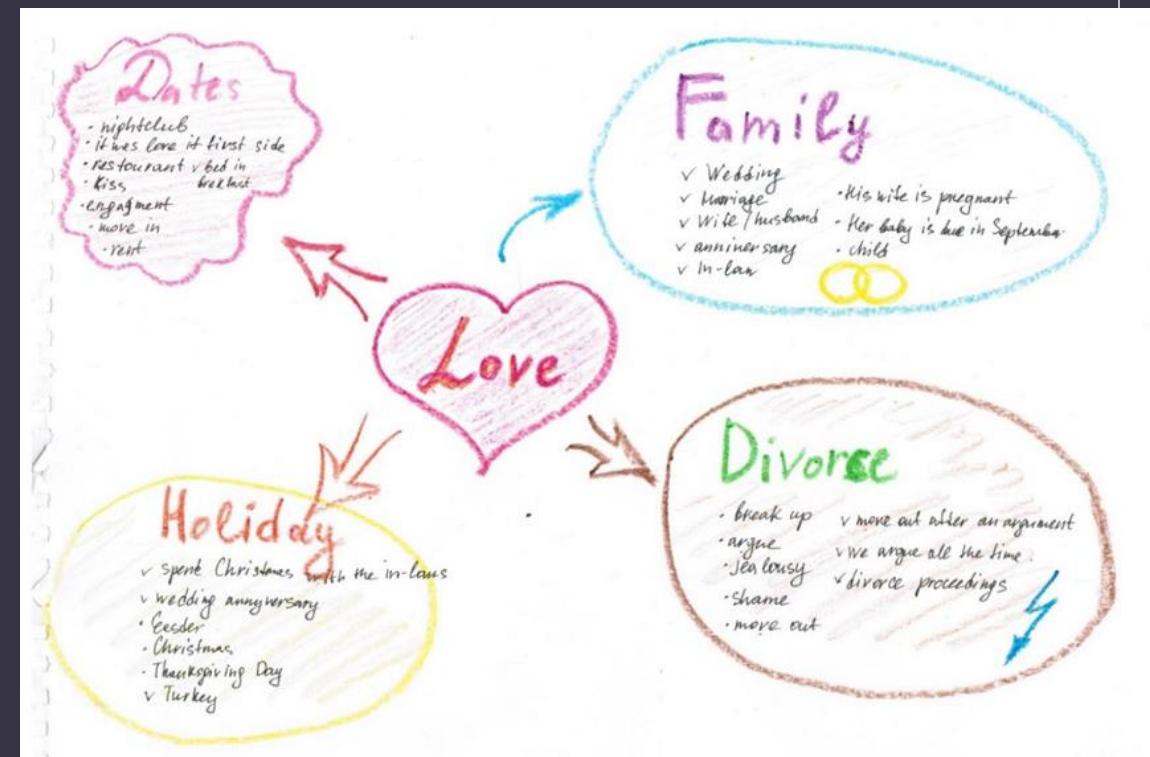 Dates
· nightclub
· it was love it first side
· restourant v bed in
· Kiss brekfast
· engagment
· move in
· rent
Family
v Wedding
v Marriage
v Wife / husband
v anninersary
v In-law
· His wife is pregnant
· Her baby is due in September.
· child
Love
Holiday
v spent Christmas with the in-laws
v wedding annyversary
· Easder
· Christmas
· Thanksgiving Day
v Turkey
Divorce
· break up
· argue
· Jealousy
· shame
· move out
v move out after an argument
v we argue all the time.
v divorce proceedings